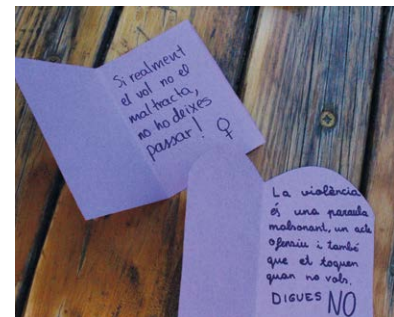 Si realment
el vol no el
maltracta,
no ho deixes
passar! ♀
La violència
és una paraula
malsonant, un acte
ofensiu i també
que et toquen
quan no vols.
DIGUES NO